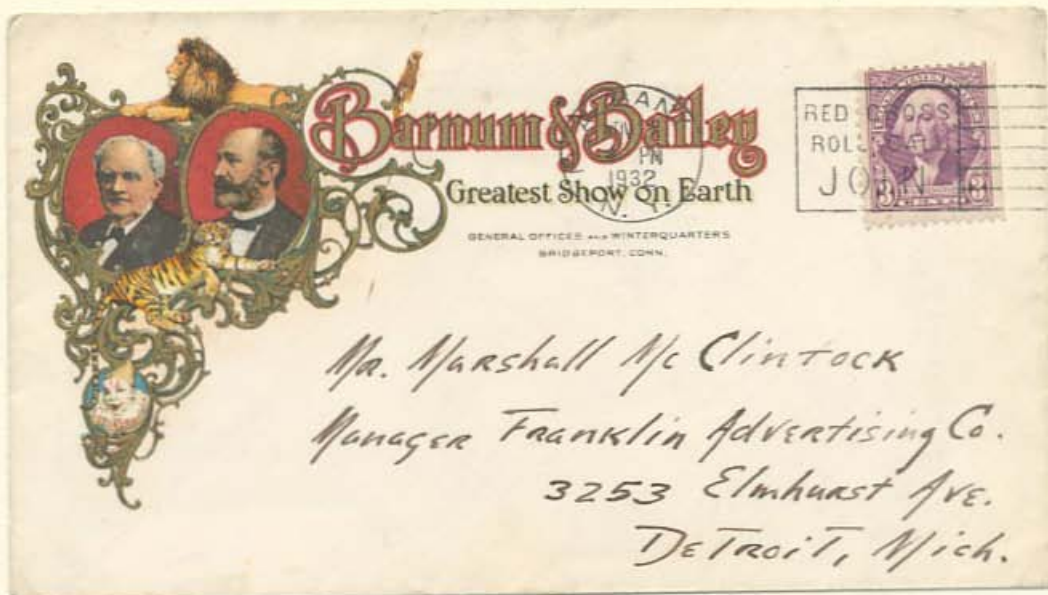 Barnum & Bailey
Greatest Show on Earth
GENERAL OFFICES AND WINTERQUARTERS
BRIDGEPORT, CONN.
PM
1932
N. Y.
RED CROSS
ROLL CALL
JOIN
3 CENTS 3
Mr. Marshall McClintock
Manager Franklin Advertising Co.
3253 Elmhurst Ave.
Detroit, Mich.